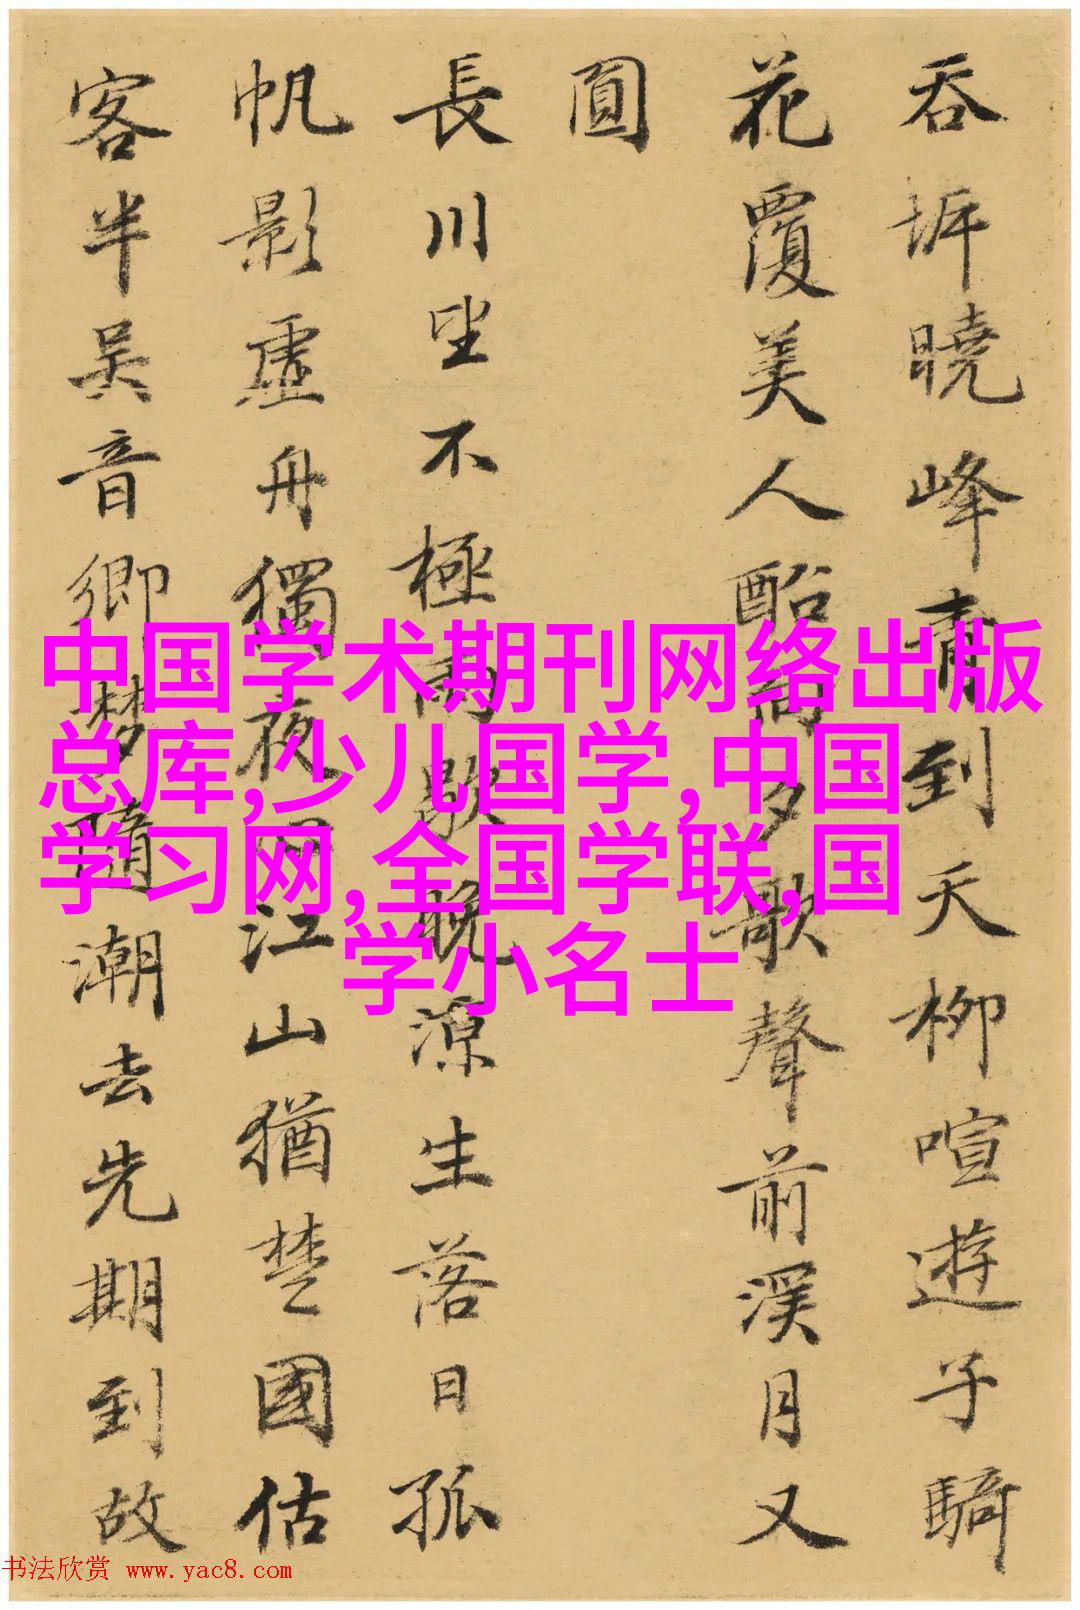 吞坼曉峰青到天柳喧遊子騎
花覆美人船兩夕歌聲前溪月又
圓
長川坐不極高歌晚涼生落日孤
帆影虛舟獨夜江山猶楚國估
客半吳音鄉夢隨潮去先期到故
中国学术期刊网络出版
总库,少儿国学,中国
学习网,全国学联,国
学小名士
书法欣赏 www.yac8.com